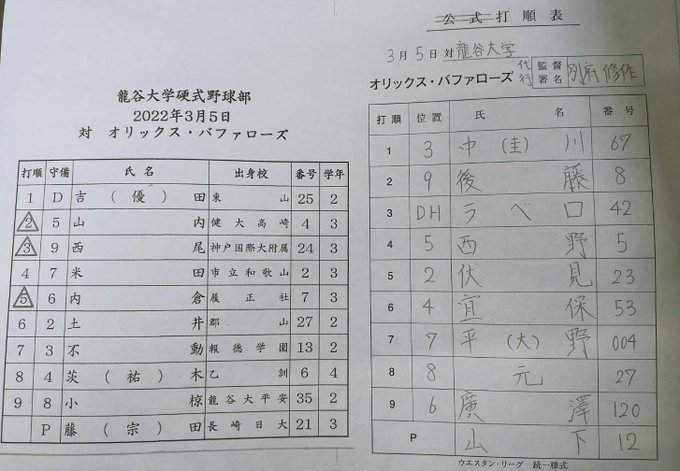 龍谷大学硬式野球部
2022年3月5日
対 オリックス・バファローズ
打順 守備 氏名 出身校 番号 学年
1 D 吉(優)田 東山 25 2
2 5 山内 健大高崎 4 3
3 9 西尾 神戸国際大附属 24 3
4 7 米田 市立和歌山 2 3
5 6 内倉 履正社 7 3
6 2 土井 郡山 27 2
7 3 不動 報徳学園 13 2
8 4 茨(祐)木 乙訓 6 4
9 8 小椋 龍谷大平安 35 2
P 藤(宗)田 長崎日大 21 3
公式打順表
3月5日対龍谷大学
オリックス・バファローズ 代行 監督署名 別府修作
打順 位置 氏名 番号
1 3 中(圭)川 67
2 9 後藤 8
3 DH ラベロ 42
4 5 西野 5
5 2 伏見 23
6 4 宜保 53
7 7 平(大)野 004
8 8 元 27
9 6 廣澤 120
P 山下 12
ウエスタン・リーグ 統一様式